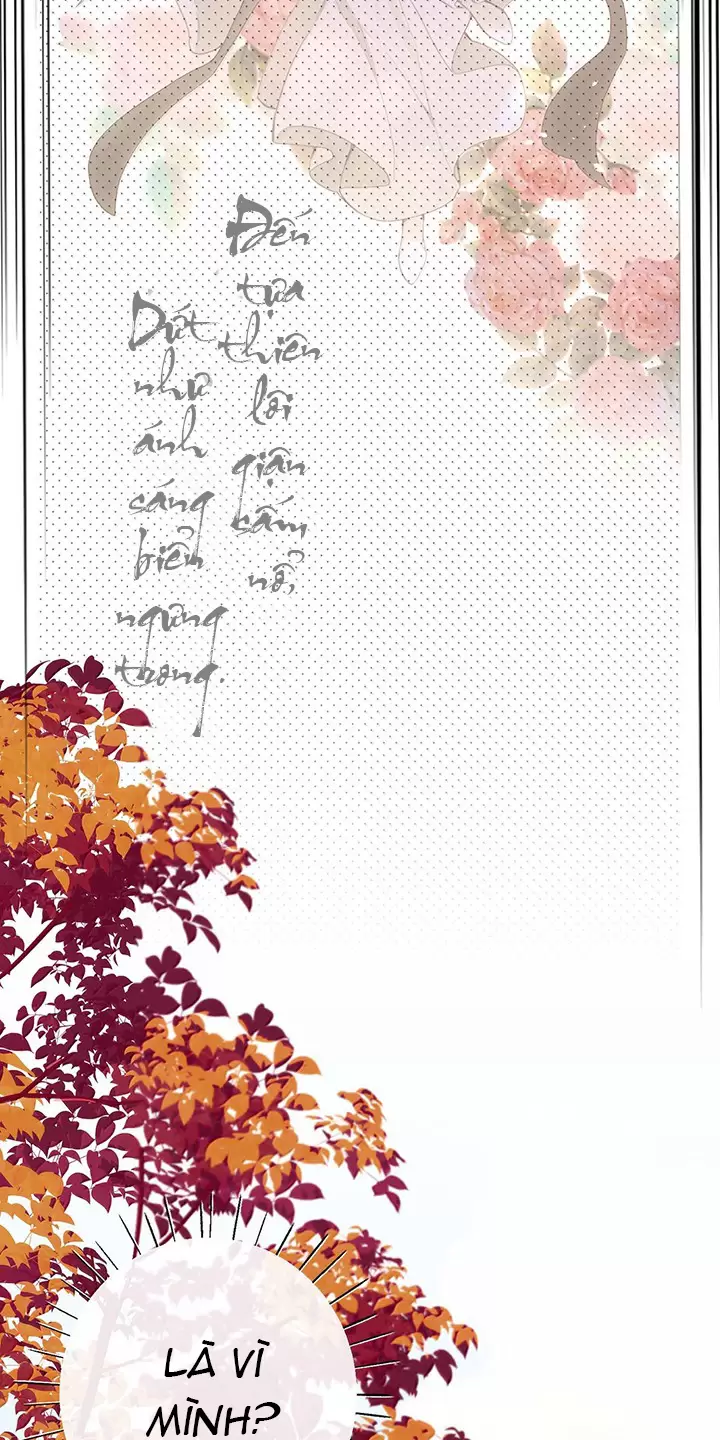 Đến
tựa
thiên
lôi
giận
sấm
nổ,
Dứt
như
ánh
sáng
biển
ngưng
trong.
LÀ VÌ
MÌNH?